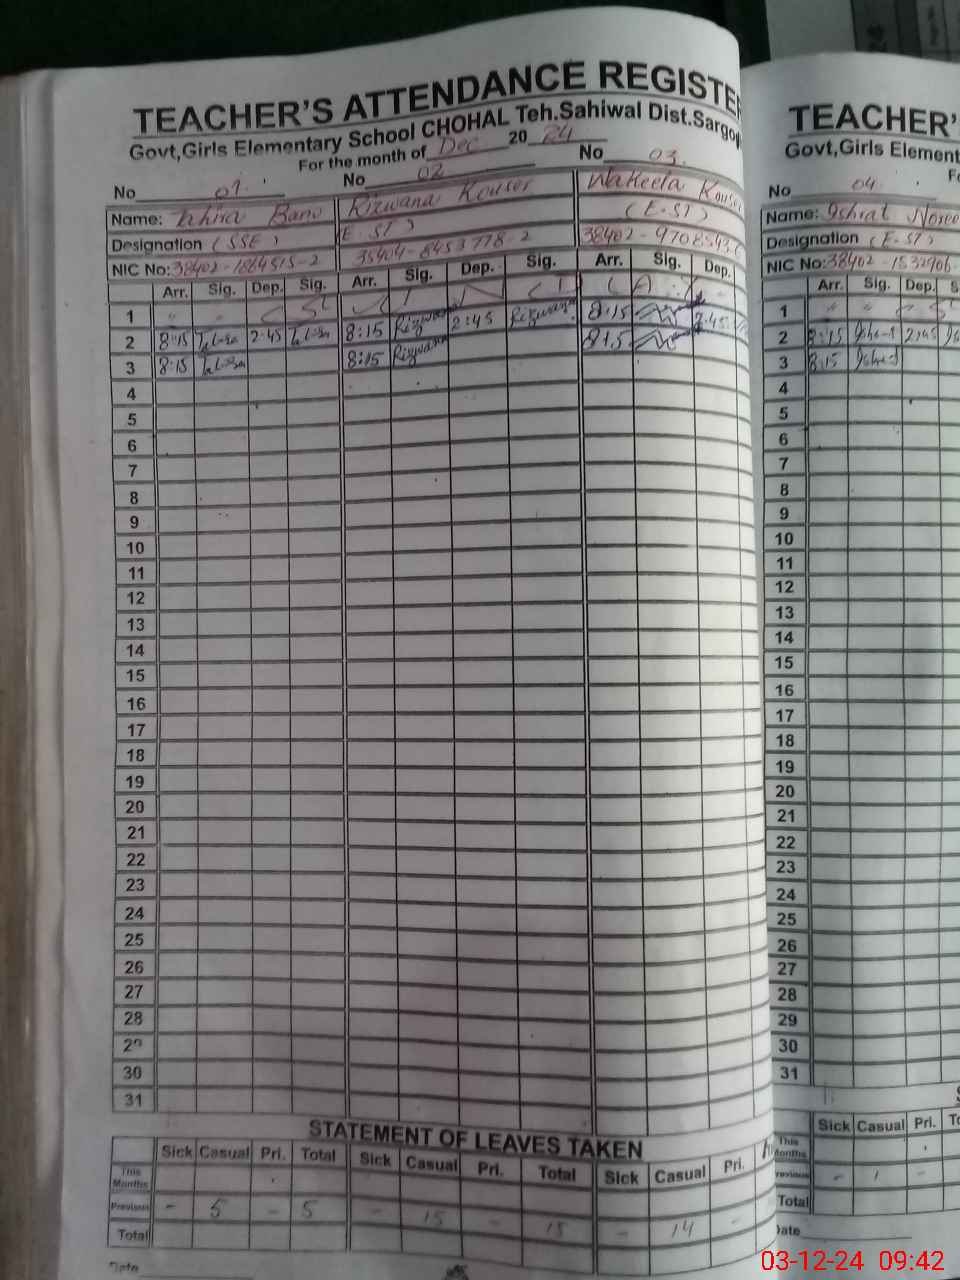 TEACHER'S ATTENDANCE REGISTE
Govt,Girls Elementary School CHOHAL Teh.Sahiwal Dist.Sargo
For the month of Dec 20 24
No 01 No 02 No 03
Name: Tahira Bano Rizwana Kouser Wakeela Kouse
Designation (SSE) (E.ST) (E.ST)
NIC No: 38402-1884515-2 35404-8453778-2 38402-9708543
Arr. Sig. Dep. Sig. Arr. Sig. Dep. Sig. Arr. Sig. Dep.
1
2 8:15 2:45 8:15 Rizwana 2:45 Rizwana 8:15 2:45
3 8:15 8:15 Rizwana 8:15
4
5
6
7
8
9
10
11
12
13
14
15
16
17
18
19
20
21
22
23
24
25
26
27
28
29
30
31
STATEMENT OF LEAVES TAKEN
Sick Casual Pri. Total Sick Casual Pri. Total Sick Casual Pri.
This Months
Previous - 5 - 5 - 15 - 15 - 14 -
Total
Date
TEACHER'
Govt,Girls Element
No 04
Name: Ishrat Noree
Designation (E.ST)
NIC No: 38402-1532906-
Arr. Sig. Dep. S
1
2 8:15 Ishrat 2:45
3 8:15 Ishrat
4
5
6
7
8
9
10
11
12
13
14
15
16
17
18
19
20
21
22
23
24
25
26
27
28
29
30
31
Sick Casual Pri. To
This Months
revious - 1 -
Total
Date
03-12-24 09:42